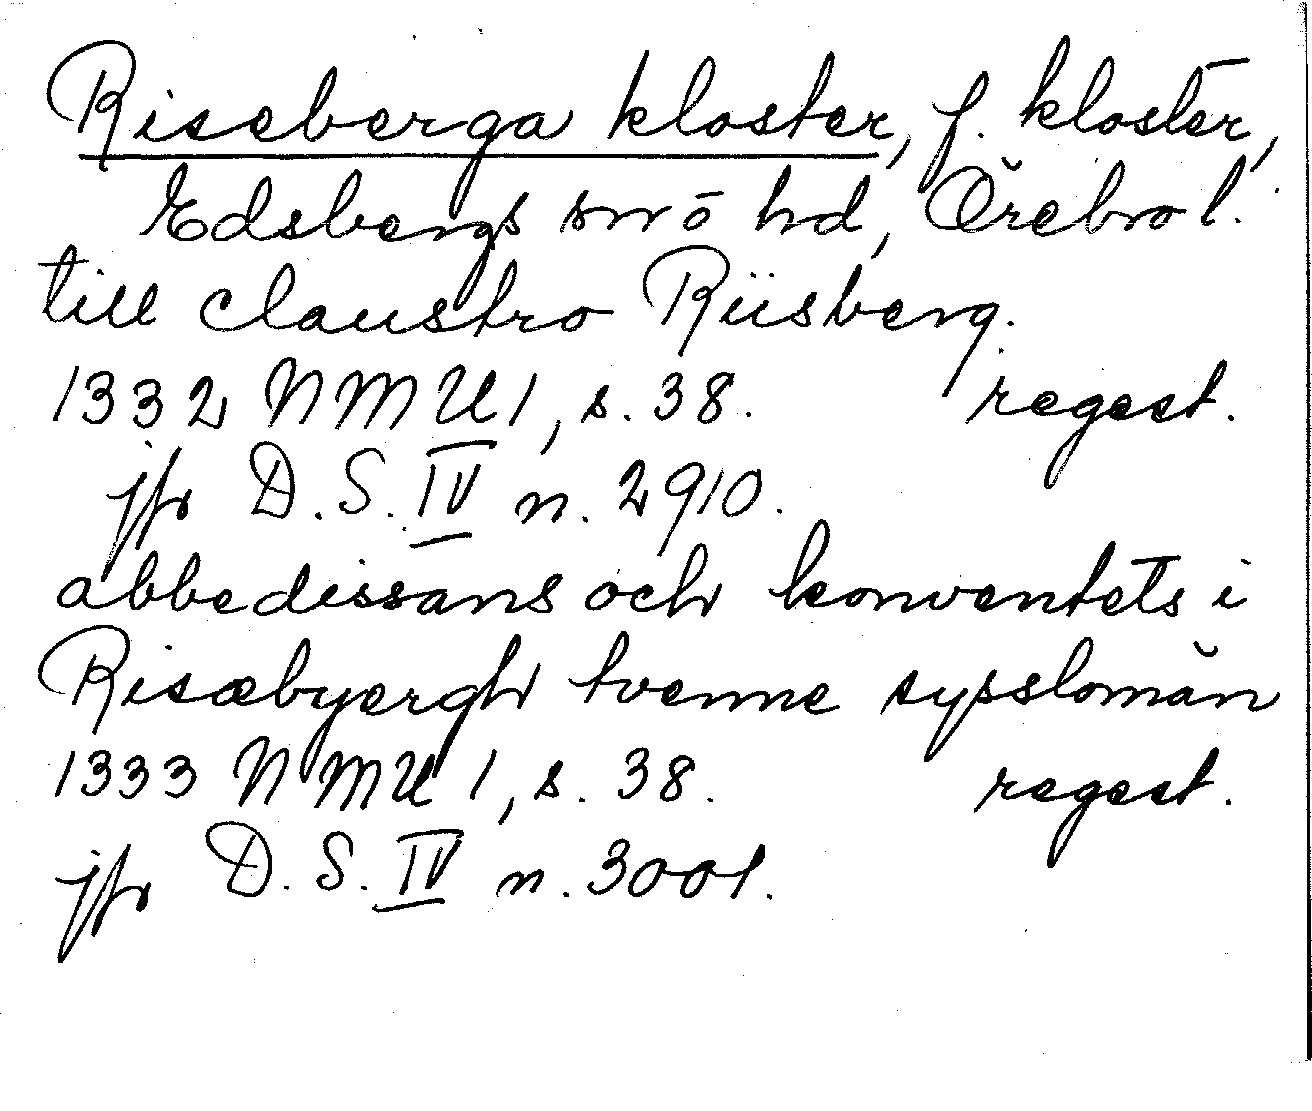 Riseberga kloster, f. kloster,
Edsbergs snö hd, Örebro l.
till claustro Riisberg.
1332 NMU 1, s. 38. regest.
jfr D. S. IV n. 2910.
abbedissans och konventets i
Risæbyergh tvenne sysslomän
1333 NMU 1, s. 38. regest.
jfr D. S. IV n. 3001.